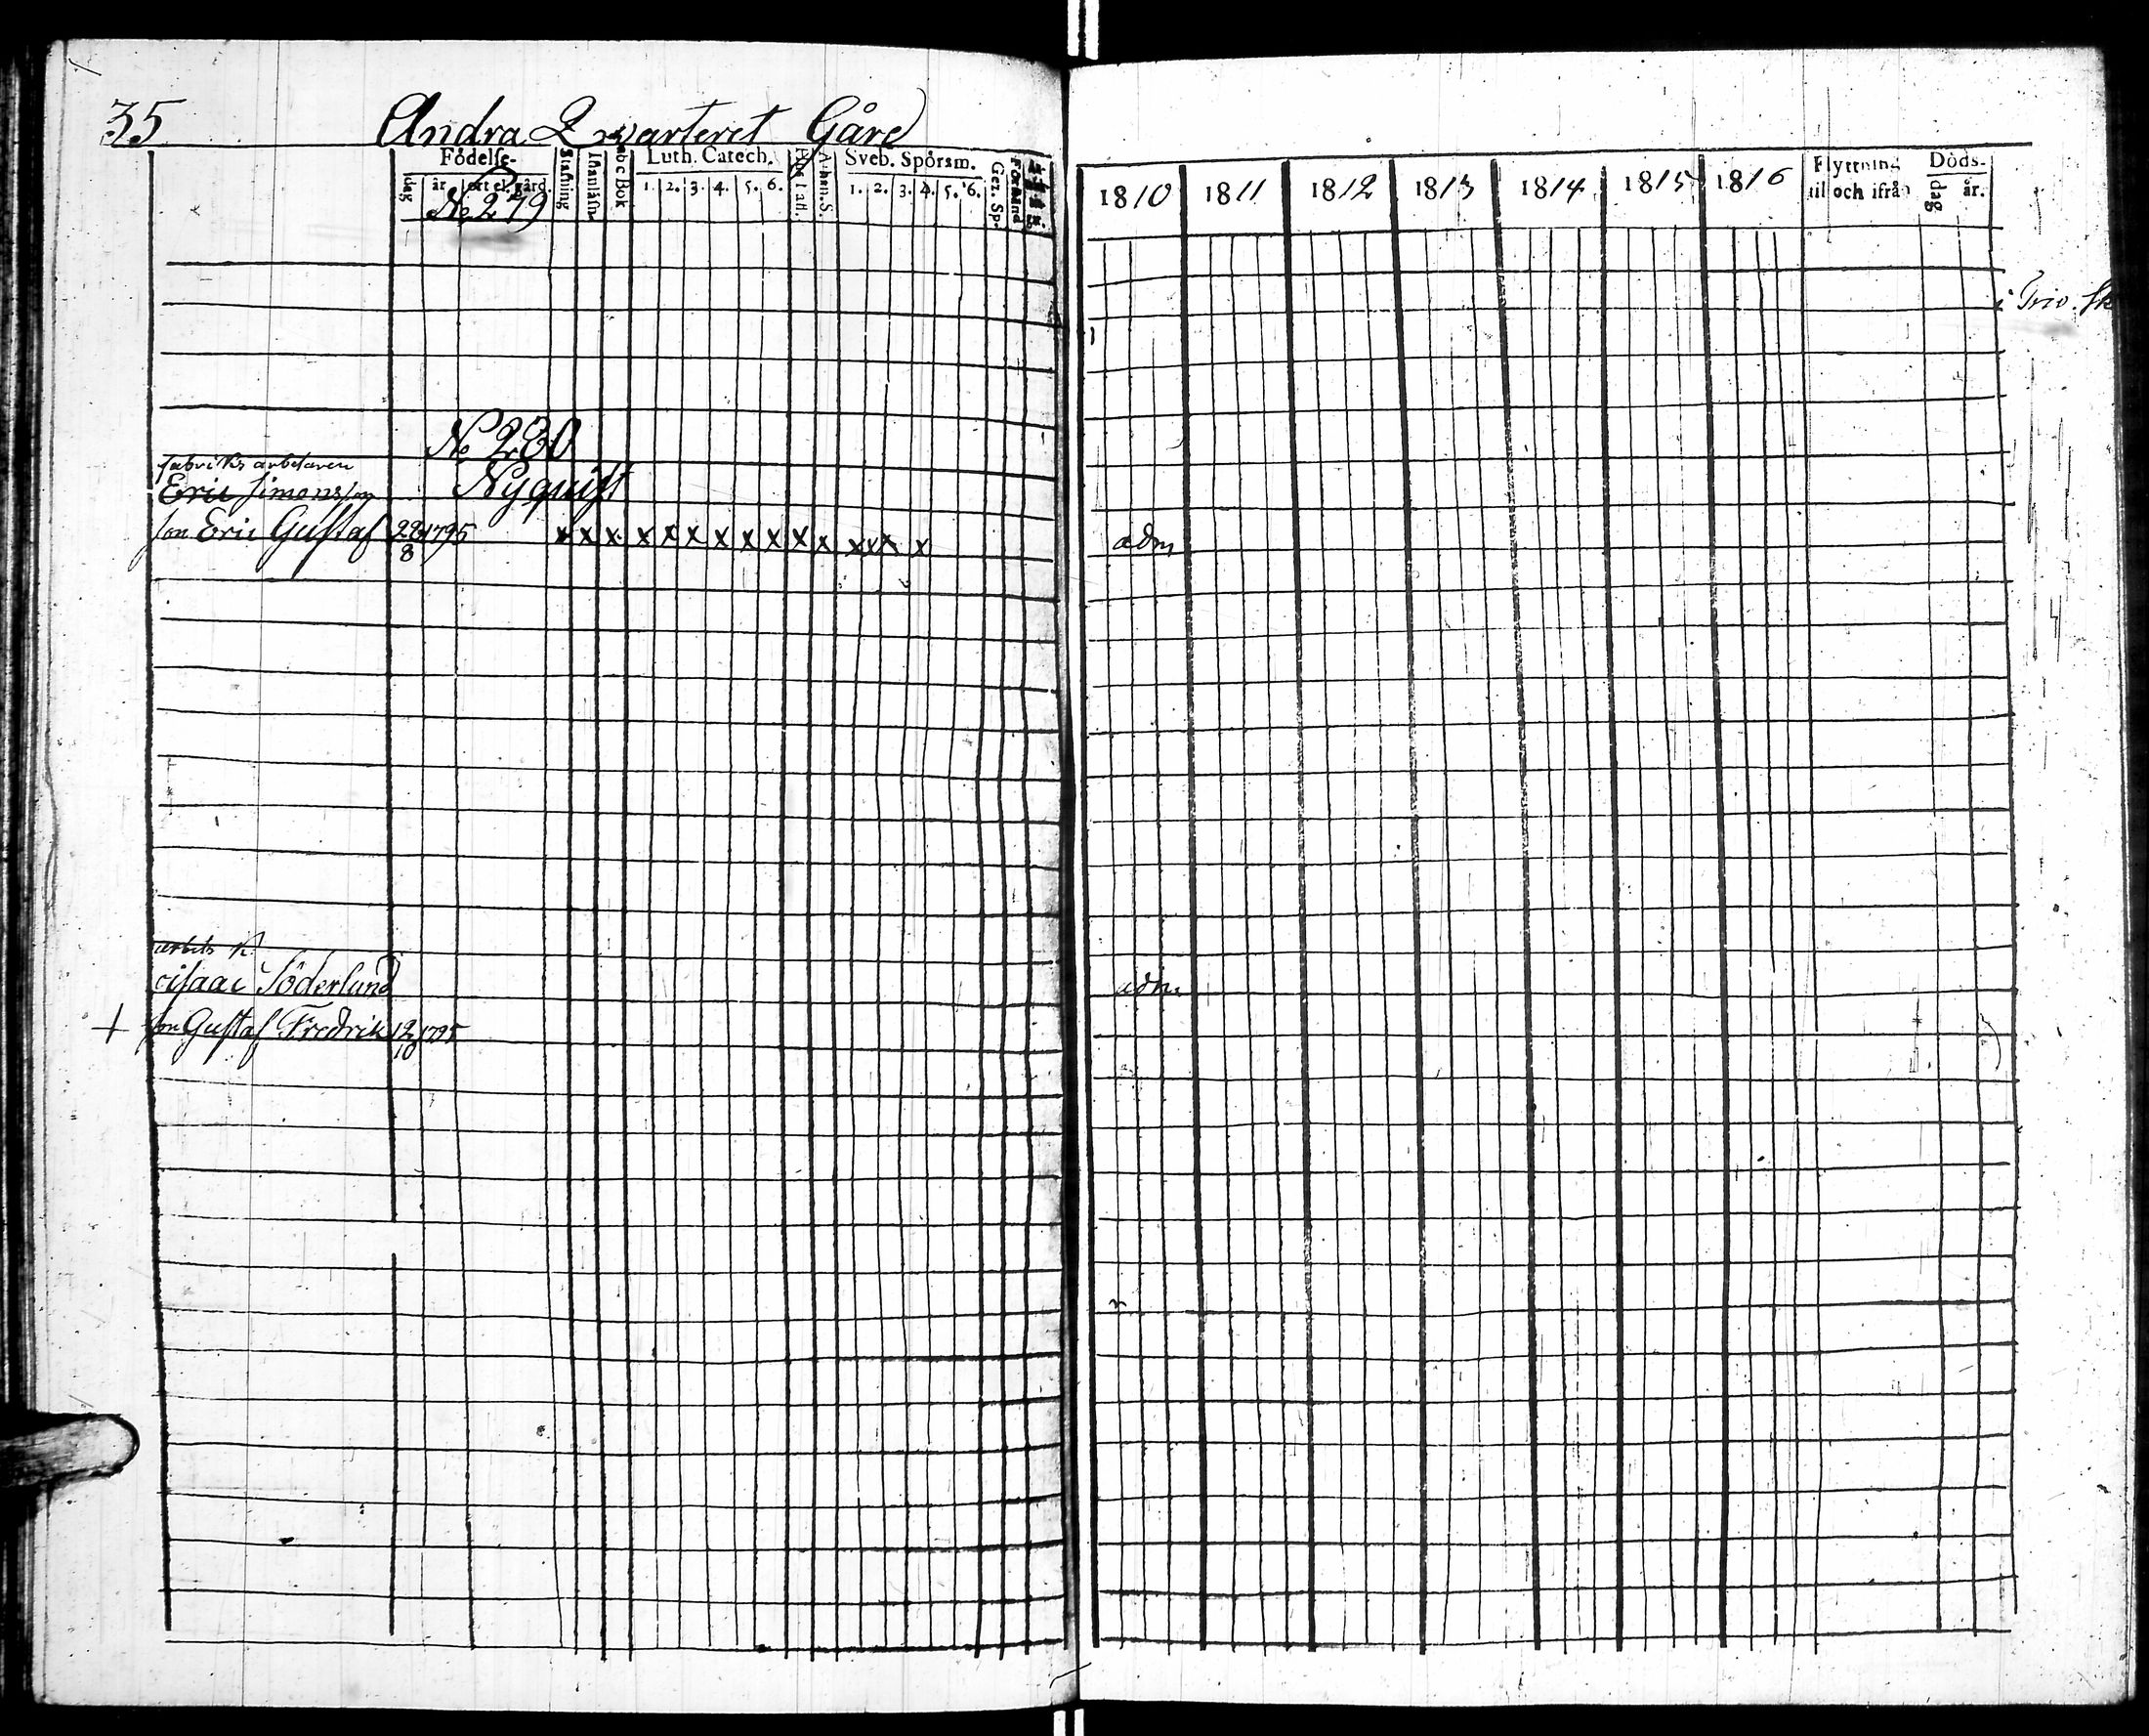 35 Andra Qwarteret Gård
Födelse- Stafning Luth. Catech. Athan.S. Sveb. Spörsm. Gez. Sp.
dag år ort el. gård. 1. 2. 3. 4. 5. 6. 1. 2. 3. 4. 5. 6.
1810 1811 1812 1813 1814 1815 1816 Flyttning till och ifrån Döds- dag år.
No 279
i Triv. Sk
No 280
fabriks arbetaren
Eric Simonsson Nyquist
son Eric Gustaf 22/8 1795 x x x x x x x x x x x x x x x adm
arbets k.
Isaac Söderlund adm
+ son Gustaf Fredrik 12/10 1795